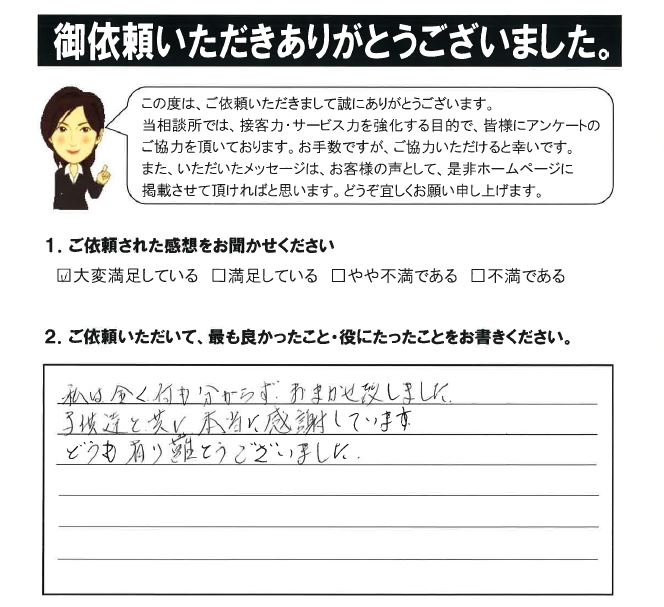 御依頼いただきありがとうございました。
この度は、ご依頼いただきまして誠にありがとうございます。
当相談所では、接客力・サービス力を強化する目的で、皆様にアンケートの
ご協力を頂いております。お手数ですが、ご協力いただけると幸いです。
また、いただいたメッセージは、お客様の声として、是非ホームページに
掲載させて頂ければと思います。どうぞ宜しくお願い申し上げます。
1. ご依頼された感想をお聞かせください
☑大変満足している □満足している □やや不満である □不満である
2. ご依頼いただいて、最も良かったこと・役にたったことをお書きください。
私は全く何も分からず おまかせ致しました.
子供達と共に 本当に感謝しています
どうも有り難とうございました.